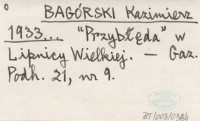 BAGÓRSKI Kazimierz
1933... "Przybłęda" w
Lipnicy Wielkiej. — Gaz.
Podh. 21, nr 9.